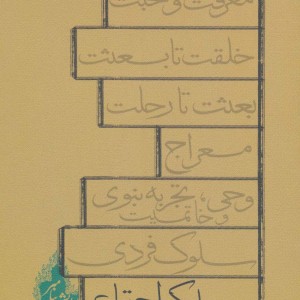 معرفت و محبت
خلقت تا بعثت
بعثت تا رحلت
معراج
وحی، تجربه نبوی
و خاتمیت
سلوک فردی
سلوک اجتماعی